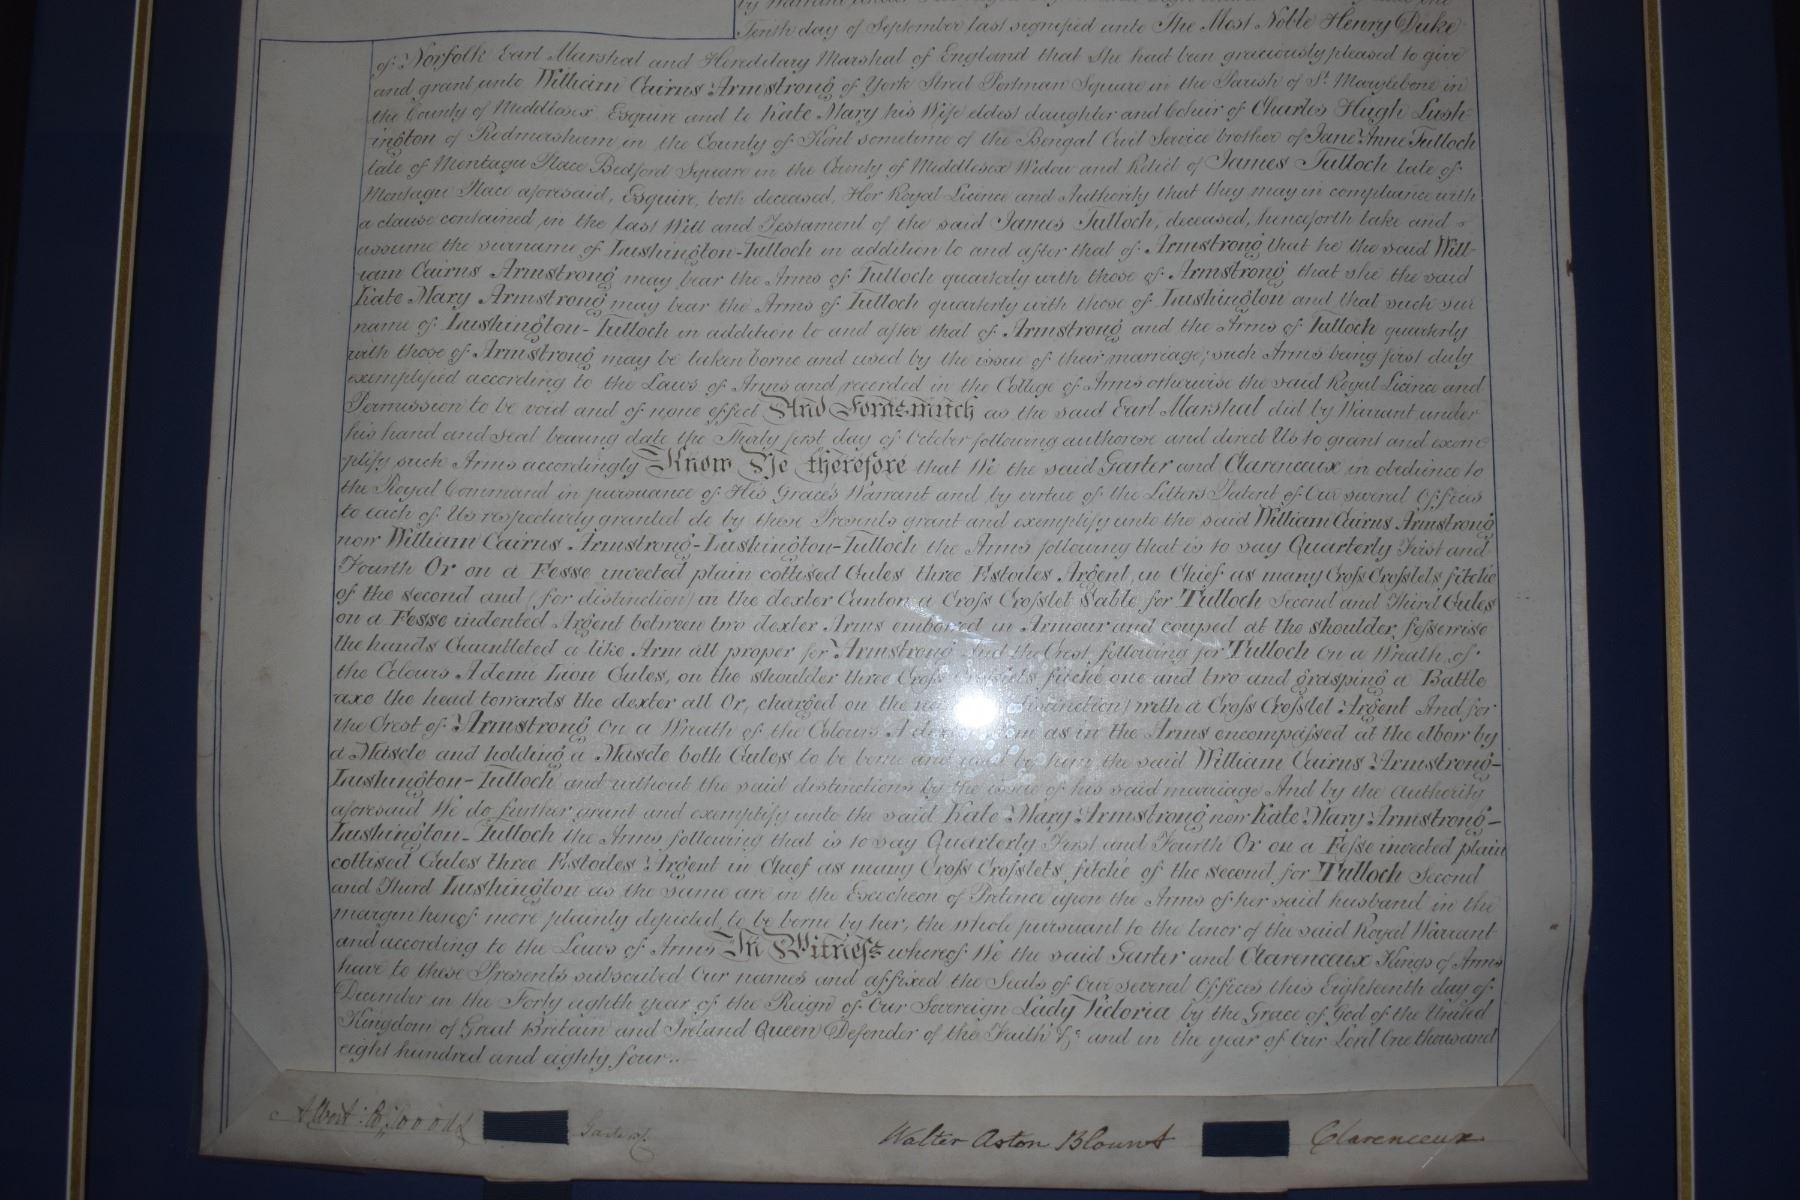 by Warrant under
Tenth day of September last signified unto The Most Noble Henry Duke
of Norfolk Earl Marshal and Hereditary Marshal of England that She had been graciously pleased to give
and grant unto William Cairns Armstrong of York Street Portman Square in the Parish of St. Marylebone in
the County of Middlesex Esquire and to Kate Mary his Wife eldest daughter and Coheir of Charles Hugh Lush
ington of Rodmersham in the County of Kent sometime of the Bengal Civil Service brother of Jane Anne Tulloch
late of Montagu Place Bedford Square in the County of Middlesex Widow and Relict of James Tulloch late of
Montagu Place aforesaid, Esquire, both deceased, Her Royal Licence and Authority that they may in compliance with
a clause contained in the last Will and Testament of the said James Tulloch, deceased, henceforth take and
assume the surname of Lushington-Tulloch in addition to and after that of Armstrong that he the said Will-
iam Cairns Armstrong may bear the Arms of Tulloch quarterly with those of Armstrong that she the said
Kate Mary Armstrong may bear the Arms of Tulloch quarterly with those of Lushington and that such sur
name of Lushington-Tulloch in addition to and after that of Armstrong and the Arms of Tulloch quarterly
with those of Armstrong may be taken borne and used by the issue of their marriage; such Arms being first duly
exemplified according to the Laws of Arms and recorded in the College of Arms otherwise the said Royal Licence and
Permission to be void and of none effect And Forasmuch as the said Earl Marshal did by Warrant under
his hand and seal bearing date the Thirty first day of October following authorize and direct Us to grant and exem
plify such Arms accordingly Know Ye therefore that We the said Garter and Clarenceux in obedience to
the Royal Command in pursuance of His Grace's Warrant and by virtue of the Letters Patent of Our several Offices
to each of Us respectively granted do by these Presents grant and exemplify unto the said William Cairns Armstrong
now William Cairns Armstrong-Lushington-Tulloch the Arms following that is to say Quarterly First and
Fourth Or on a Fesse invected plain cottised Gules three Estoiles Argent, in Chief as many Cross Crosslets fitchée
of the second and (for distinction) in the dexter Canton a Cross Crosslet Sable for Tulloch Second and Third Gules
on a Fesse indented Argent between two dexter Arms embowed in Armour and couped at the shoulder fessewise
the hands Gauntleted a like Arm all proper for Armstrong And the Crest following for Tulloch On a Wreath of
the Colours A demi Lion Gules, on the shoulder three Cross Crosslets fitchée one and two and grasping a Battle
axe the head towards the dexter all Or, charged on the distinction) with a Cross Crosslet Argent And for
the Crest of Armstrong On a Wreath of the Colours A dexter Arm as in the Arms encompassed at the elbow by
a Mascle and holding a Mascle both Gules to be borne and used by him the said William Cairns Armstrong-
Lushington-Tulloch and without the said distinctions by the issue of his said marriage And by the Authority
aforesaid We do further grant and exemplify unto the said Kate Mary Armstrong now Kate Mary Armstrong-
Lushington-Tulloch the Arms following that is to say Quarterly First and Fourth Or on a Fesse invected plain
cottised Gules three Estoiles Argent in Chief as many Cross Crosslets fitchée of the second for Tulloch Second
and Third Lushington as the same are in the Escocheon of Pretence upon the Arms of her said husband in the
margin hereof more plainly depicted to be borne by her, the whole pursuant to the tenor of the said Royal Warrant
and according to the Laws of Arms In Witness whereof We the said Garter and Clarenceux Kings of Arms
have to these Presents subscribed Our names and affixed the Seals of Our several Offices this Eighteenth day of
December in the Forty eighth year of the Reign of Our Sovereign Lady Victoria by the Grace of God of the United
Kingdom of Great Britain and Ireland Queen Defender of the Faith &c. and in the year of Our Lord One thousand
eight hundred and eighty four..
Albert W. Woods Garter Walter Aston Blount Clarenceux